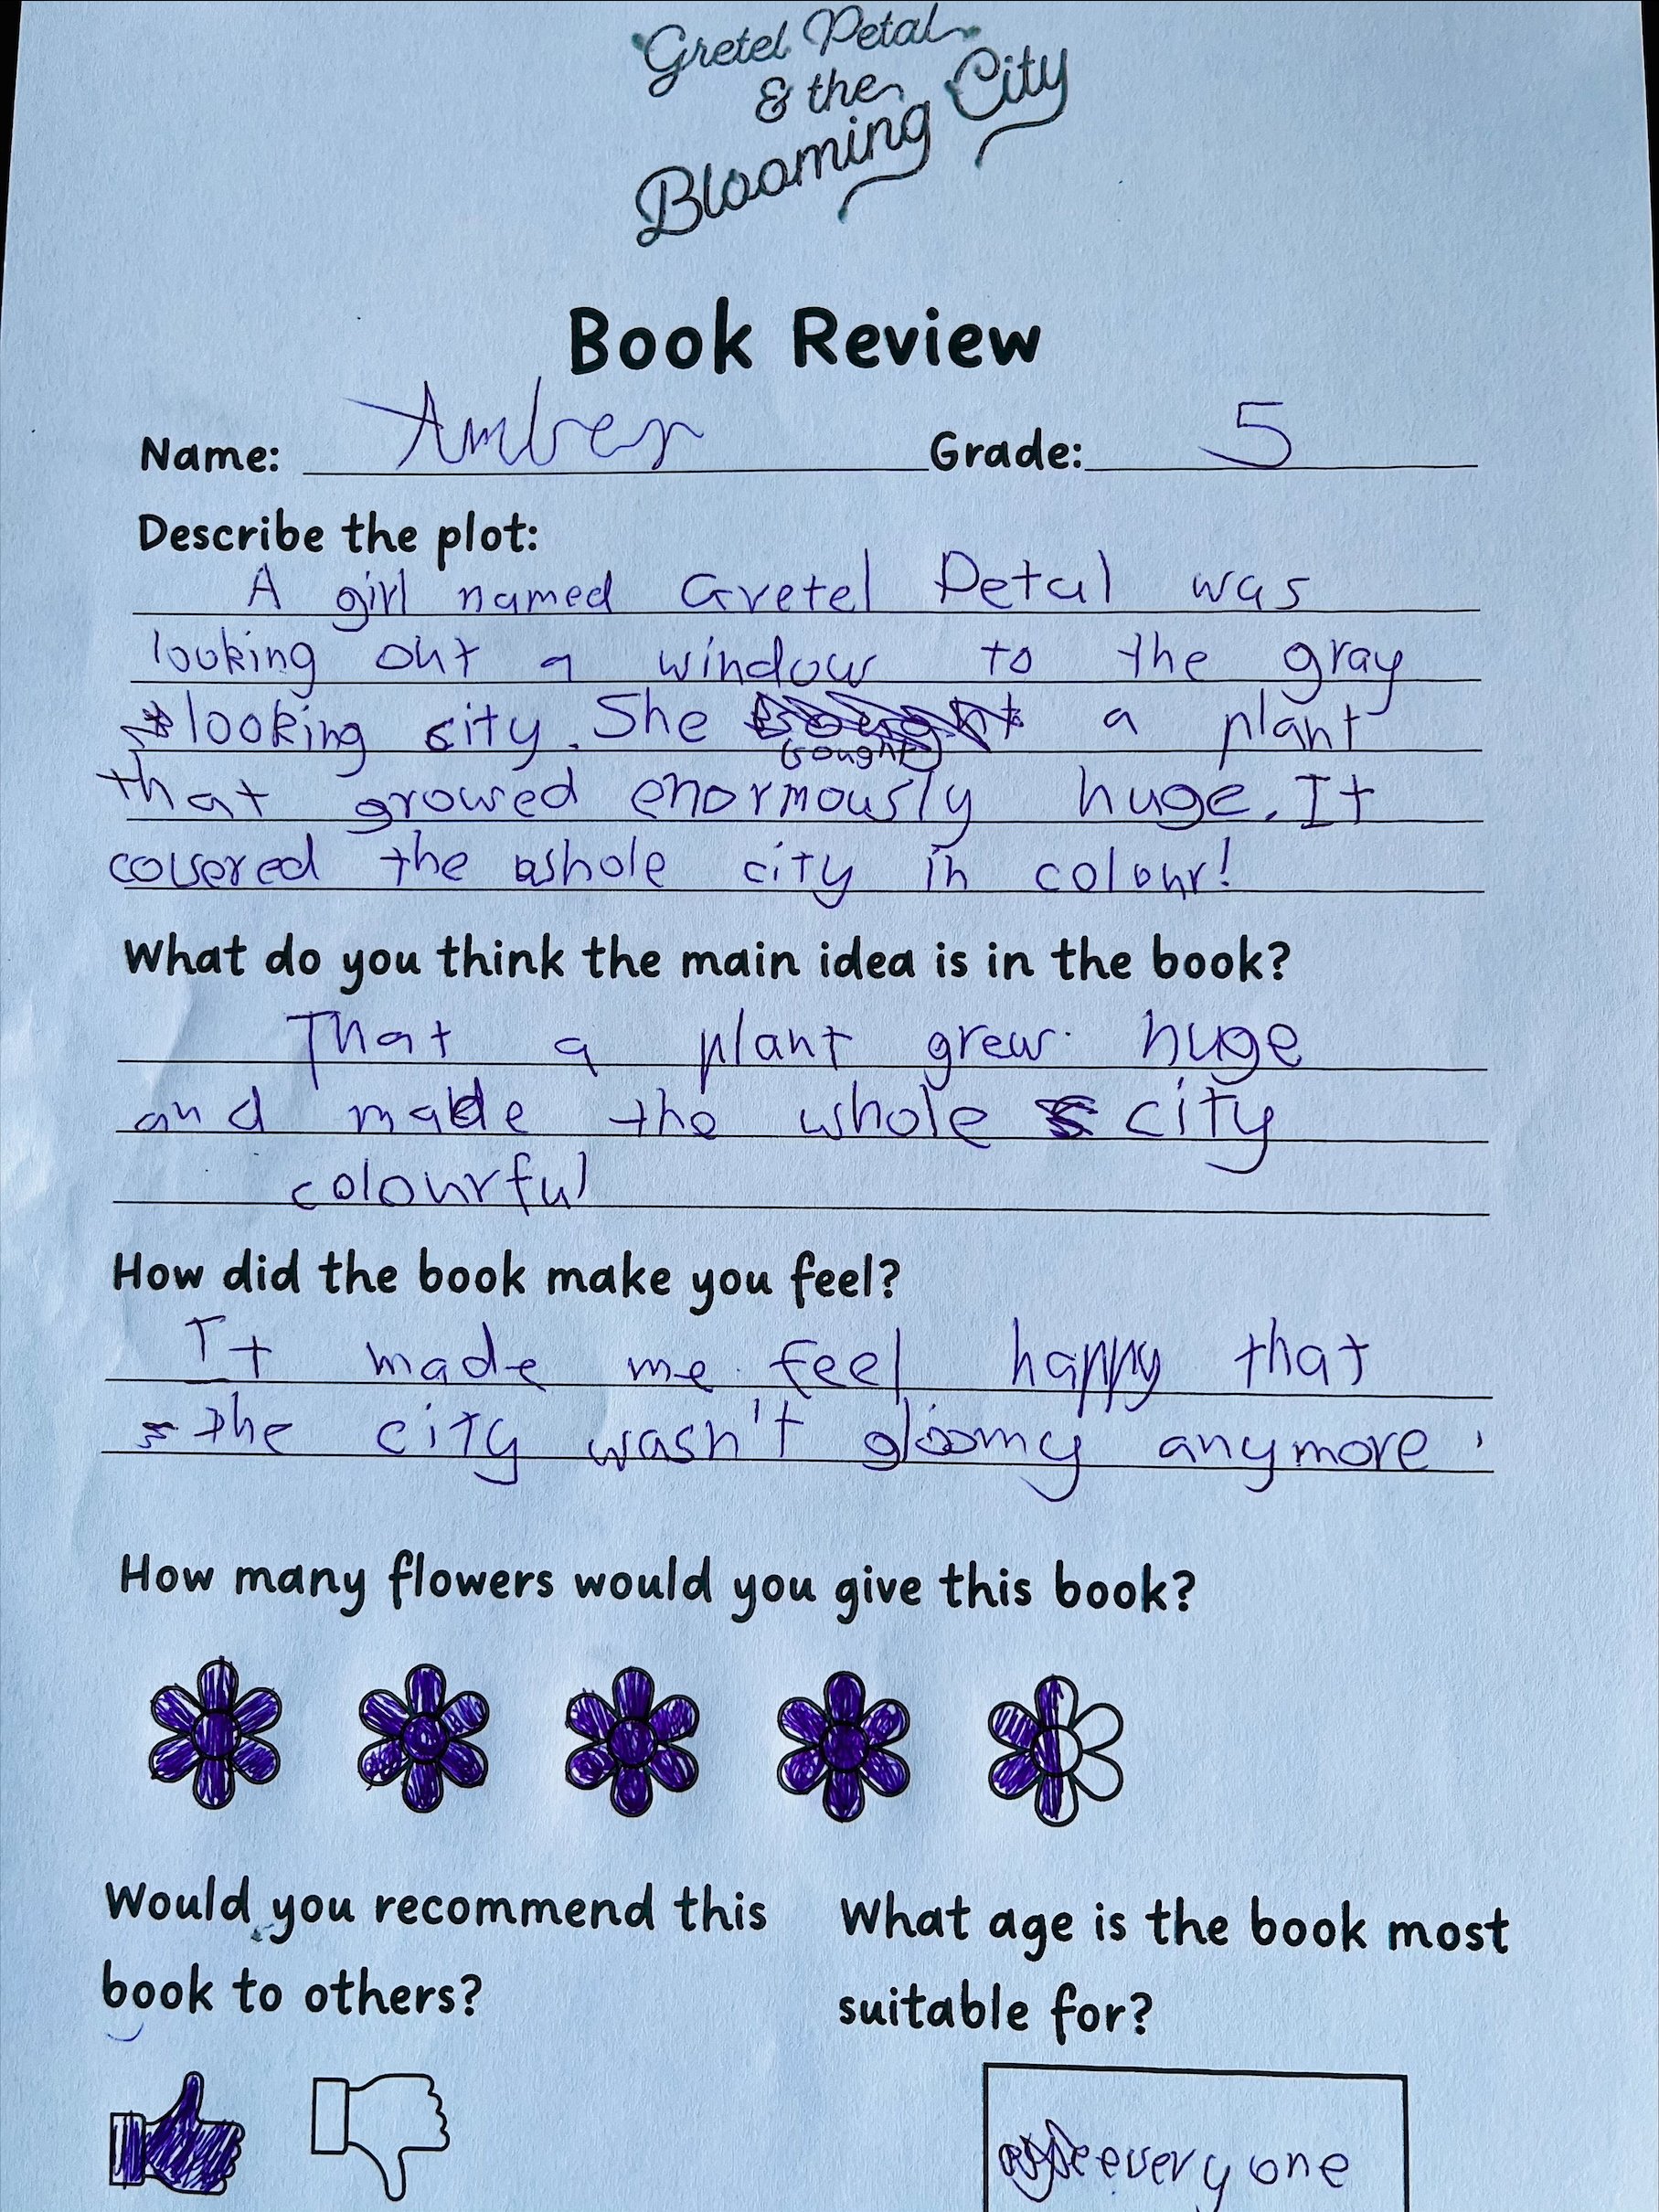 Gretel Petal
& the
Blooming City
Book Review
Name: Amber Grade: 5
Describe the plot:
A girl named Gretel Petal was
looking out a window to the gray
looking city. She bought a plant
that growed enormously huge. It
covered the whole city in colour!
What do you think the main idea is in the book?
That a plant grew huge
and made the whole city
colourful
How did the book make you feel?
It made me feel happy that
the city wasn't gloomy anymore.
How many flowers would you give this book?
Would you recommend this
book to others?
What age is the book most
suitable for?
everyone